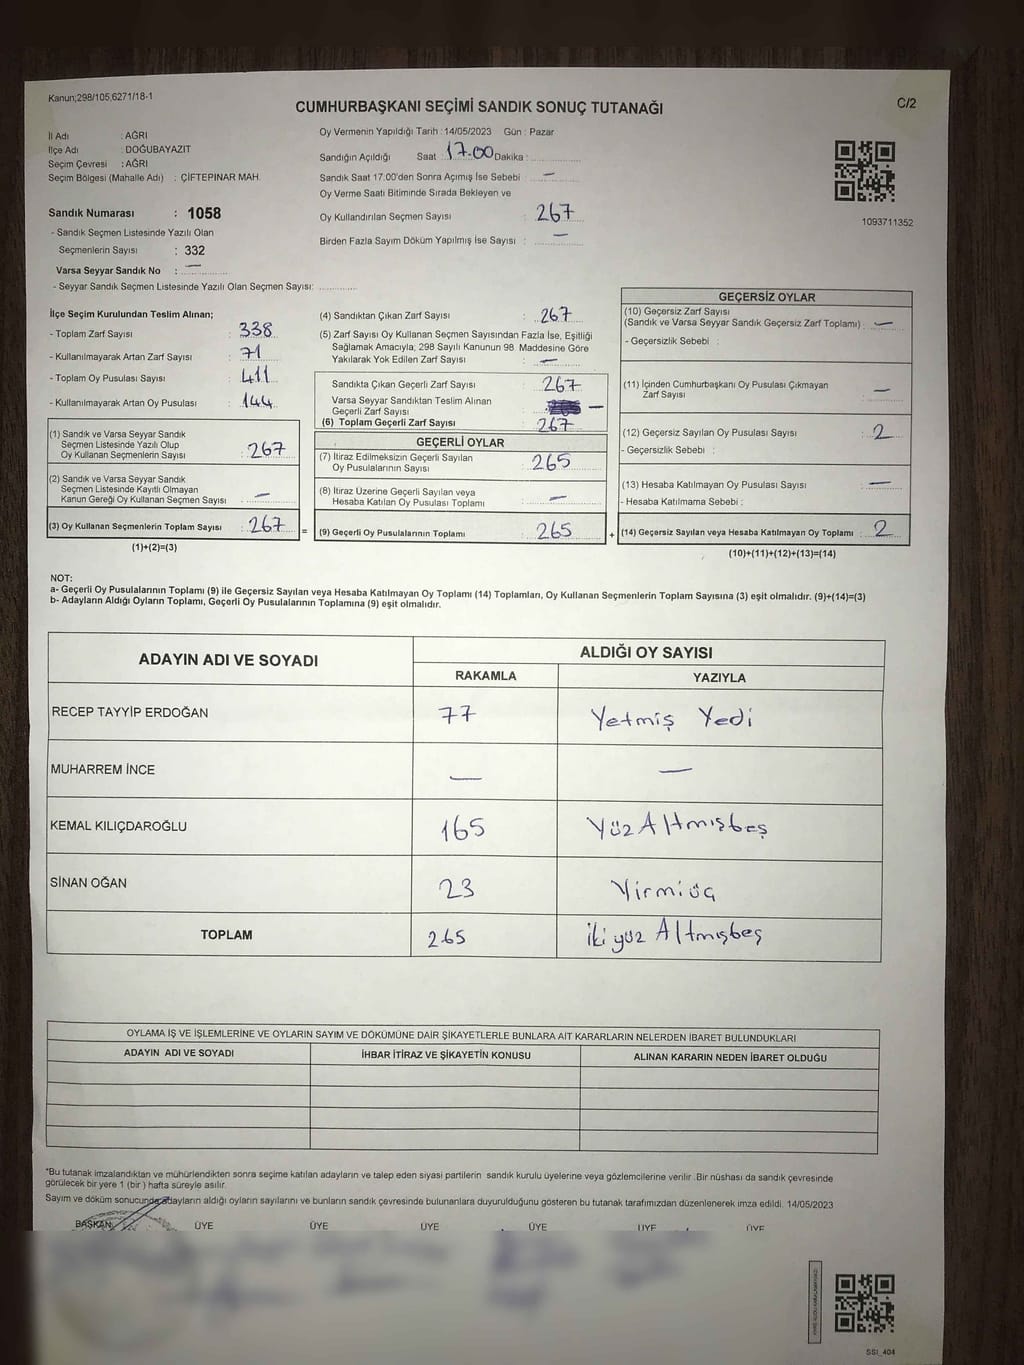 Kanun;298/105,6271/18-1
CUMHURBAŞKANI SEÇİMİ SANDIK SONUÇ TUTANAĞI
C/2
İl Adı : AĞRI
İlçe Adı : DOĞUBAYAZIT
Seçim Çevresi : AĞRI
Seçim Bölgesi (Mahalle Adı) : ÇİFTEPINAR MAH.
Sandık Numarası : 1058
- Sandık Seçmen Listesinde Yazılı Olan
Seçmenlerin Sayısı : 332
Varsa Seyyar Sandık No : —
- Seyyar Sandık Seçmen Listesinde Yazılı Olan Seçmen Sayısı:
Oy Vermenin Yapıldığı Tarih : 14/05/2023 Gün : Pazar
Sandığın Açıldığı Saat 17.00 Dakika :
Sandık Saat 17.00'den Sonra Açımış İse Sebebi : —
Oy Verme Saati Bitiminde Sırada Bekleyen ve
Oy Kullandırılan Seçmen Sayısı : 267
Birden Fazla Sayım Döküm Yapılmış İse Sayısı : —
1093711352
İlçe Seçim Kurulundan Teslim Alınan;
- Toplam Zarf Sayısı : 338
- Kullanılmayarak Artan Zarf Sayısı : 71
- Toplam Oy Pusulası Sayısı : 411
- Kullanılmayarak Artan Oy Pusulası : 144
(1) Sandık ve Varsa Seyyar Sandık
Seçmen Listesinde Yazılı Olup
Oy Kullanan Seçmenlerin Sayısı : 267
(2) Sandık ve Varsa Seyyar Sandık
Seçmen Listesinde Kayıtlı Olmayan
Kanun Gereği Oy Kullanan Seçmen Sayısı : —
(3) Oy Kullanan Seçmenlerin Toplam Sayısı : 267
(1)+(2)=(3)
=
(4) Sandıktan Çıkan Zarf Sayısı : 267
(5) Zarf Sayısı Oy Kullanan Seçmen Sayısından Fazla İse, Eşitliği
Sağlamak Amacıyla; 298 Sayılı Kanunun 98. Maddesine Göre
Yakılarak Yok Edilen Zarf Sayısı : —
Sandıkta Çıkan Geçerli Zarf Sayısı : 267
Varsa Seyyar Sandıktan Teslim Alınan
Geçerli Zarf Sayısı : —
(6) Toplam Geçerli Zarf Sayısı : 267
GEÇERLİ OYLAR
(7) İtiraz Edilmeksizin Geçerli Sayılan
Oy Pusulalarının Sayısı : 265
(8) İtiraz Üzerine Geçerli Sayılan veya
Hesaba Katılan Oy Pusulası Toplamı : —
(9) Geçerli Oy Pusulalarının Toplamı : 265
+
GEÇERSİZ OYLAR
(10) Geçersiz Zarf Sayısı
(Sandık ve Varsa Seyyar Sandık Geçersiz Zarf Toplamı) : —
- Geçersizlik Sebebi :
(11) İçinden Cumhurbaşkanı Oy Pusulası Çıkmayan
Zarf Sayısı : —
(12) Geçersiz Sayılan Oy Pusulası Sayısı : 2
- Geçersizlik Sebebi :
(13) Hesaba Katılmayan Oy Pusulası Sayısı : —
- Hesaba Katılmama Sebebi :
(14) Geçersiz Sayılan veya Hesaba Katılmayan Oy Toplamı : 2
(10)+(11)+(12)+(13)=(14)
NOT:
a- Geçerli Oy Pusulalarının Toplamı (9) ile Geçersiz Sayılan veya Hesaba Katılmayan Oy Toplamı (14) Toplamları, Oy Kullanan Seçmenlerin Toplam Sayısına (3) eşit olmalıdır. (9)+(14)=(3)
b- Adayların Aldığı Oyların Toplamı, Geçerli Oy Pusulalarının Toplamına (9) eşit olmalıdır.
ADAYIN ADI VE SOYADI
ALDIĞI OY SAYISI
RAKAMLA YAZIYLA
RECEP TAYYİP ERDOĞAN 77 Yetmiş Yedi
MUHARREM İNCE — —
KEMAL KILIÇDAROĞLU 165 YüzAltmışbeş
SİNAN OĞAN 23 Yirmiüç
TOPLAM 265 İkiyüz Altmışbeş
OYLAMA İŞ VE İŞLEMLERİNE VE OYLARIN SAYIM VE DÖKÜMÜNE DAİR ŞİKAYETLERLE BUNLARA AİT KARARLARIN NELERDEN İBARET BULUNDUKLARI
ADAYIN ADI VE SOYADI İHBAR İTİRAZ VE ŞİKAYETİN KONUSU ALINAN KARARIN NEDEN İBARET OLDUĞU
*Bu tutanak imzalandıktan ve mühürlendikten sonra seçime katılan adayların ve talep eden siyasi partilerin sandık kurulu üyelerine veya gözlemcilerine verilir. Bir nüshası da sandık çevresinde
görülecek bir yere 1 (bir) hafta süreyle asılır.
Sayım ve döküm sonucunda adayların aldığı oyların sayılarını ve bunların sandık çevresinde bulunanlara duyurulduğunu gösteren bu tutanak tarafımızdan düzenlenerek imza edildi. 14/05/2023
BAŞKAN ÜYE ÜYE ÜYE ÜYE ÜYE ÜYE
SSI_404